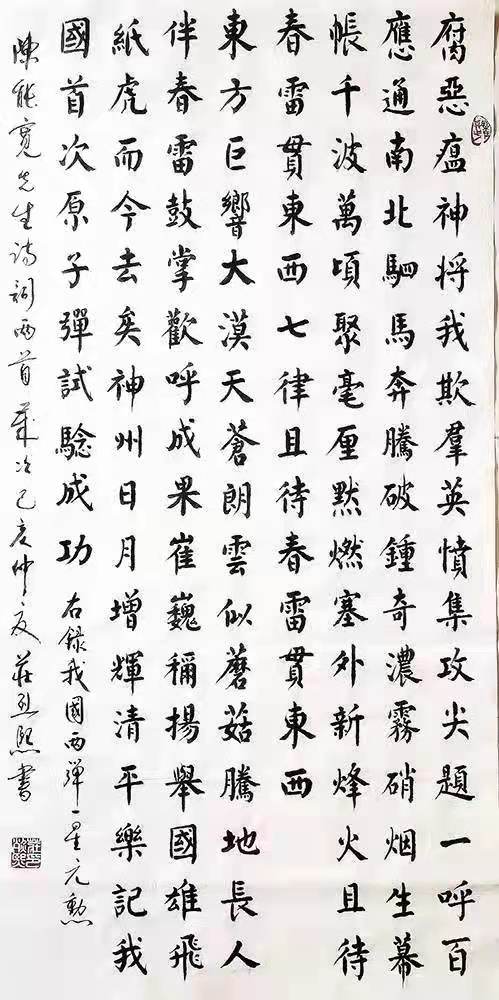 腐惡瘟神將我欺羣英憤集攻尖題一呼百
應通南北駟馬奔騰破鍾奇濃霧硝烟生幕
帳千波萬頃聚毫厘默燃塞外新烽火且待
春雷貫東西七律且待春雷貫東西
東方巨響大漠天蒼朗雲似蘑菇騰地長人
伴春雷鼓掌歡呼成果崔巍稱揚舉國雄飛
紙虎而今去矣神州日月增輝清平樂記我
國首次原子彈試驗成功 右錄我國两彈一星元勲
陳能寬先生诗詞两首 歲次己亥仲夏 莊烈熙書